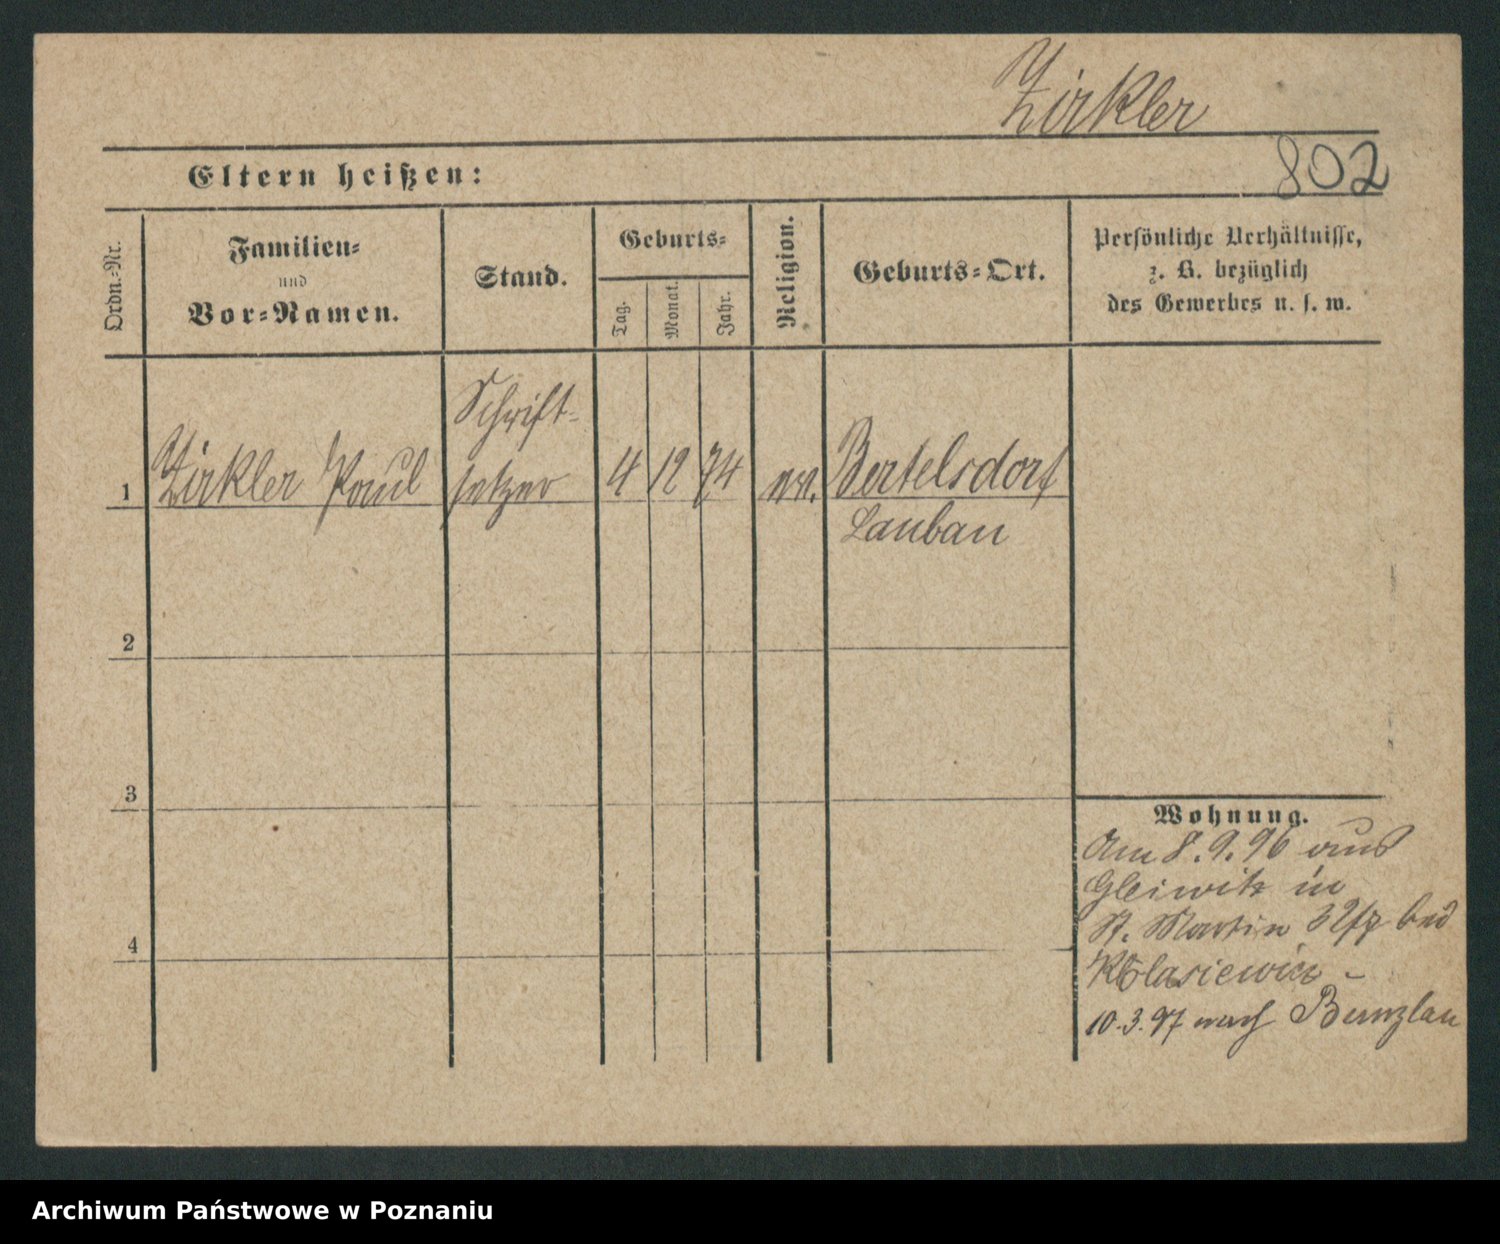 Zirkler
802
Eltern heißen:
Ordn.=Nr.
Familien=
und
Vor=Namen.
Stand.
Geburts=
Tag.
Monat.
Jahr.
Religion.
Geburts=Ort.
Persönliche Verhältnisse,
z. B. bezüglich
des Gewerbes u. s. w.
Schrift-
1 Zirkler Paul setzer 4 12 74 Bertelsdorf
Lauban
2
3
4
Wohnung.
Am 8.9.96 aus
Gleiwitz in
St. Martin bei
10.3.97 nach Bunzlau
Archiwum Państwowe w Poznaniu